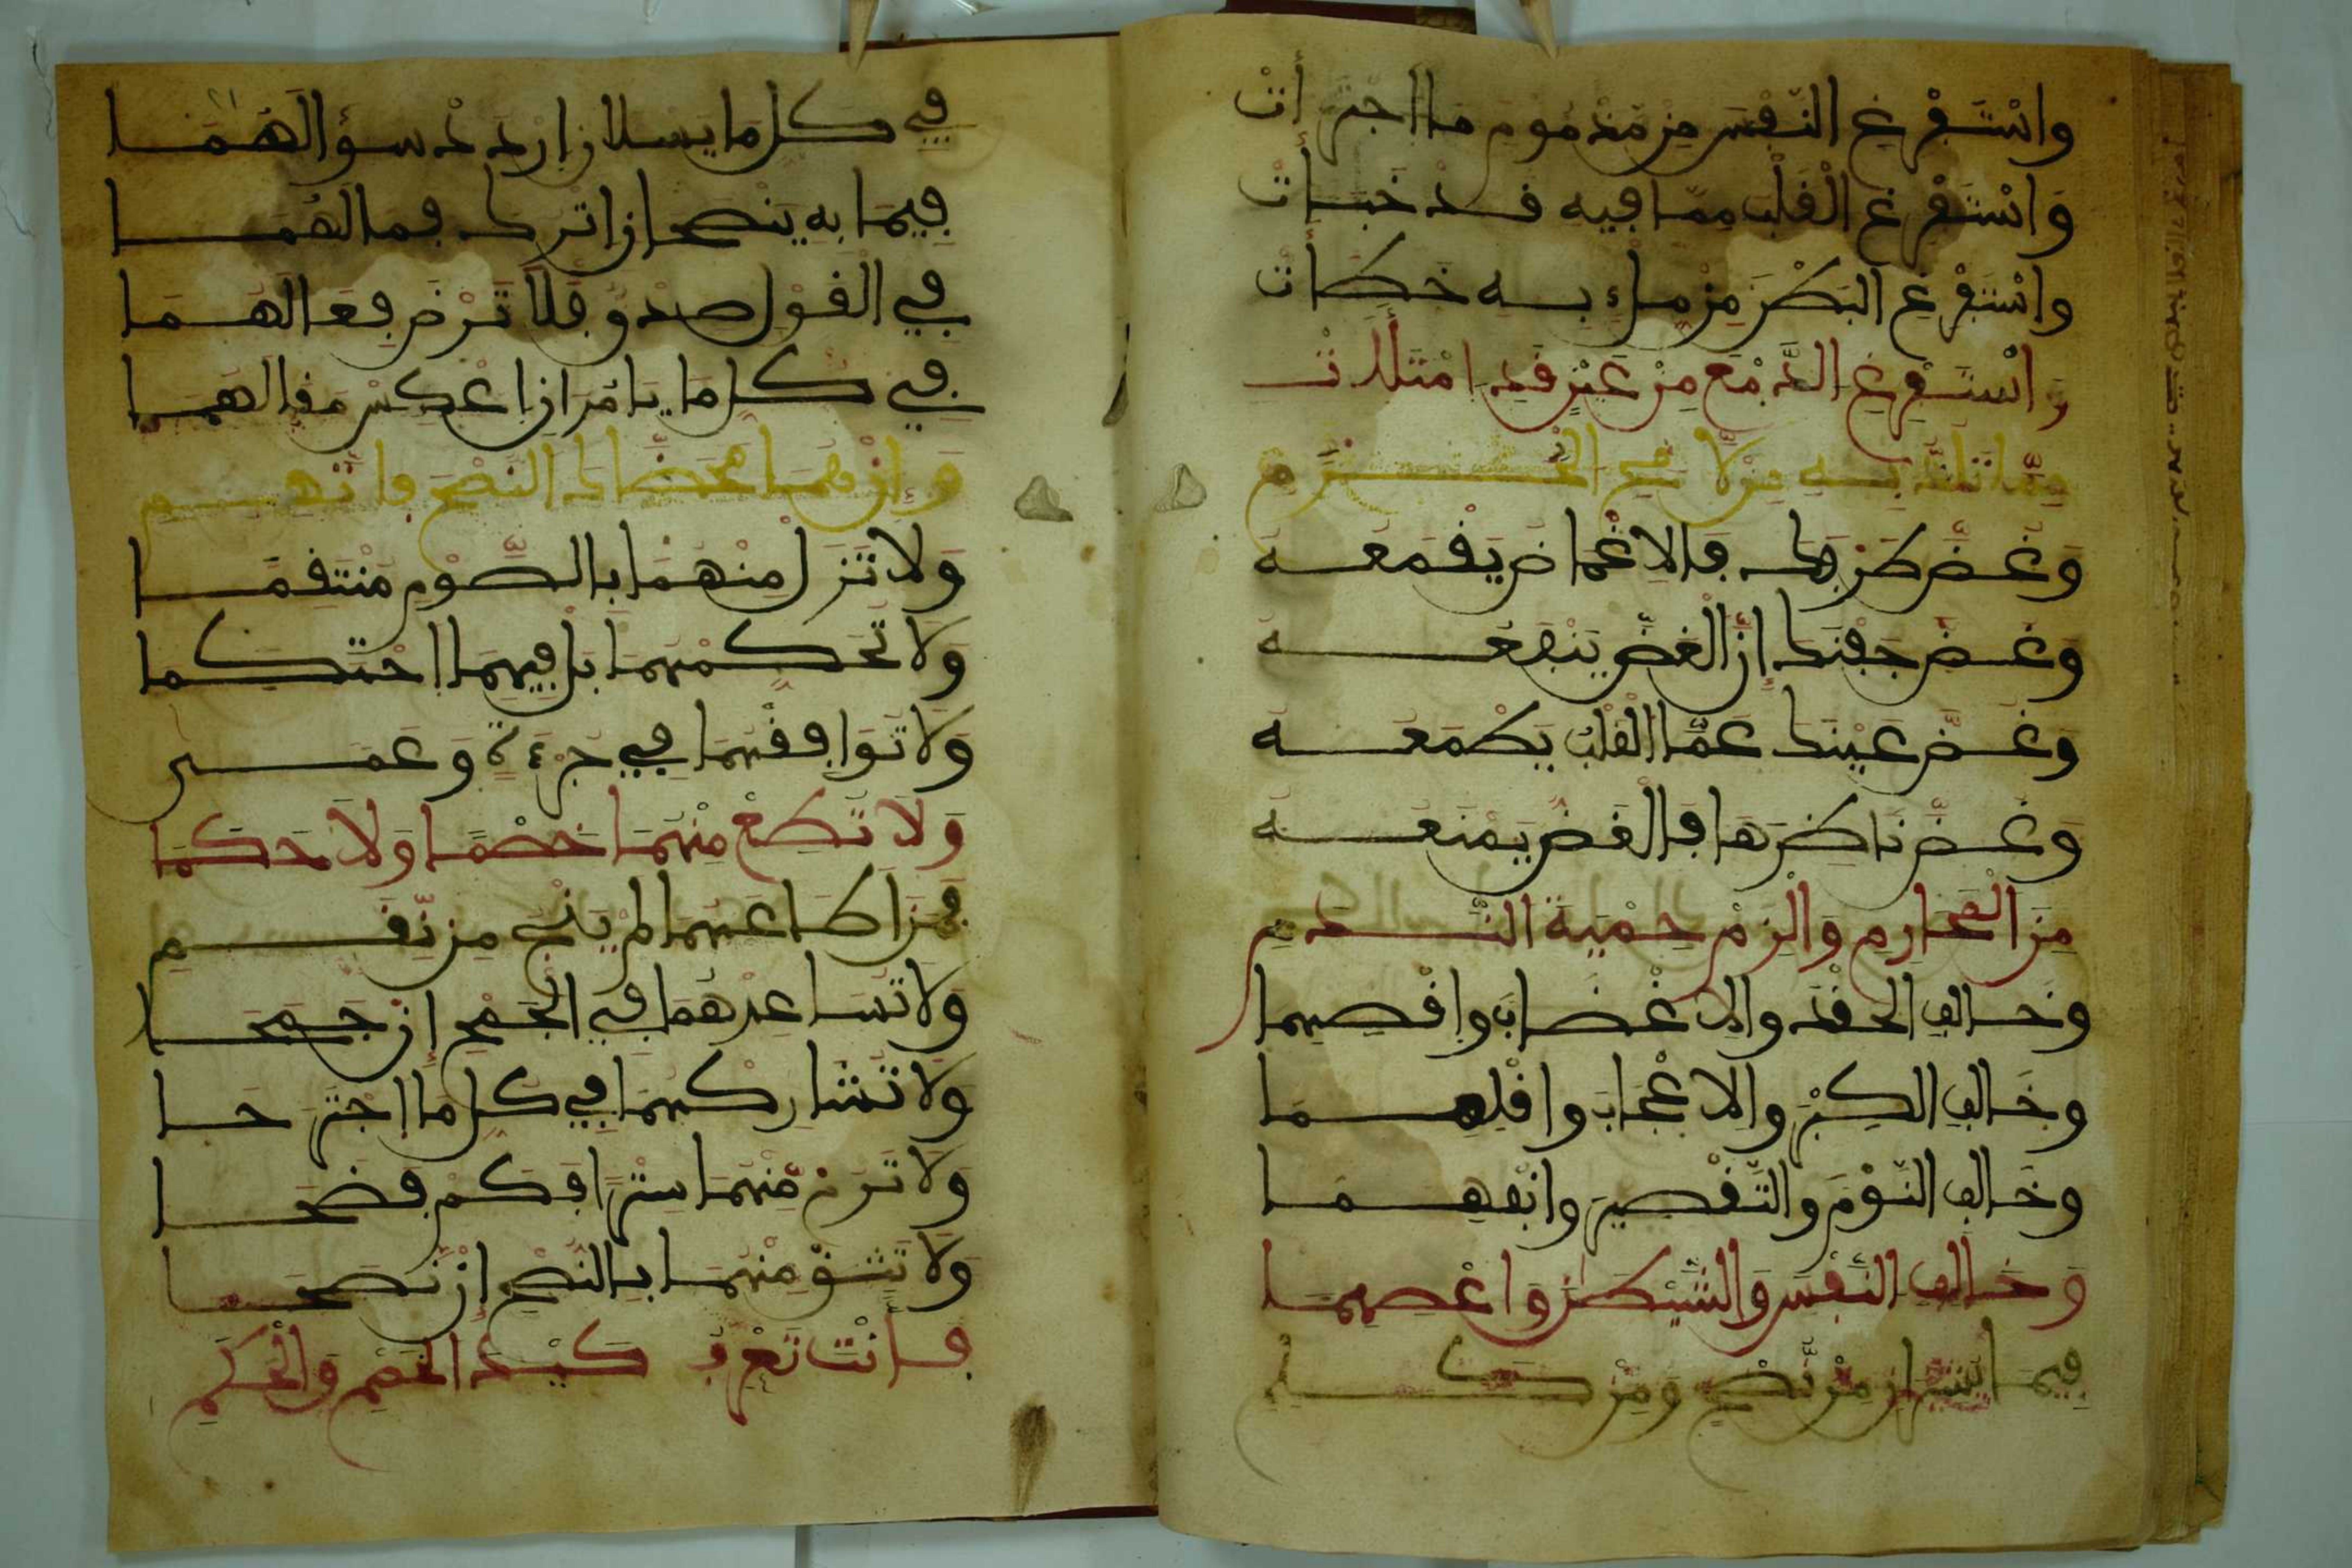 واسْتَفْرِغِ النَّفْسَ مِنْ مَذْمُومِ مَا اجْتَرَأَتْ
وَاسْتَفْرِغِ الْقَلْبَ مِمَّا فِيهِ قَدْ خَبَأَتْ
وَاسْتَفْرِغِ الْبَطْنَ مِنْ مِلْءٍ بِهِ خَطَأَتْ
وَاسْتَفْرِغِ الدَّمْعَ مِنْ عَيْنٍ قَدِ امْتَلَأَتْ
وَغُضَّ طَرْفَكَ فَالْاِغْمَاضُ يَقْمَعُهُ
وَغُضَّ جَفْنَكَ إِنَّ الْغَضَّ يَنْفَعُهُ
وَغُضَّ عَيْنَكَ عَمَّا الْقَلْبُ يَطْمَعُهُ
وَغُضَّ نَاظِرَهَا فَالْغَضُّ يَمْنَعُهُ
مِنَ الْمَحَارِمِ وَالْزَمْ حِمْيَةَ النَّدَمِ
وَخَالِفِ الْحِقْدَ وَالْاِغْضَابَ وَاقْصِهِمَا
وَخَالِفِ الْكِبْرَ وَالْاِعْجَابَ وَاقْلِهِمَا
وَخَالِفِ النَّوْمَ وَالتَّقْصِيرَ وَانْفِهِمَا
وَخَالِفِ النَّفْسَ وَالشَّيْطَانَ وَاعْصِهِمَا
فِيمَا مِنْ نُصْحٍ وَمِنْ
فِي كُلِّ مَا يَسْئَلَانِ ارْدُدْ سُؤَالَهُمَا
فِيمَا بِهِ يَنْصَحَانِ اتْرُكْ فَمَا لَهُمَا
فِي الْقَوْلِ صِدْقٌ فَلَا تَرْضَ فِعَالَهُمَا
فِي كُلِّ مَا يَأْمُرَانِ اعْكِسْ مَقَالَهُمَا
وَإِنْ هُمَا مَحَّضَاكَ النُّصْحَ فَاتَّهِمِ
وَلَا تَزَلْ مِنْهُمَا بِالصَّوْمِ مُنْتَقِمَا
وَلَا تُحَكِّمْهُمَا بَلْ فِيهِمَا احْتَكِمَا
وَلَا تُوَافِقْهُمَا فِي جُرْءَةٍ وَعَمَى
وَلَا تُطِعْ مِنْهُمَا خَصْمًا وَلَا حَكَمَا
فَمَنْ أَطَاعَهُمَا لَمْ يَنْجُ مِنْ نِقَمِ
وَلَا تُسَاعِدْهُمَا فِي الْجَمْحِ إِنْ جَمَحَا
وَلَا تُشَارِكْهُمَا فِي كُلِّ مَا اجْتَرَحَا
وَلَا تَرُمْ مِنْهُمَا سِتْرًا فَكَمْ فَضَحَا
وَلَا تَثِقْ مِنْهُمَا بِالنُّصْحِ إِنْ نَصَحَا
فَأَنْتَ تَعْرِفُ كَيْدَ الْخَصْمِ وَالْحَكَمِ